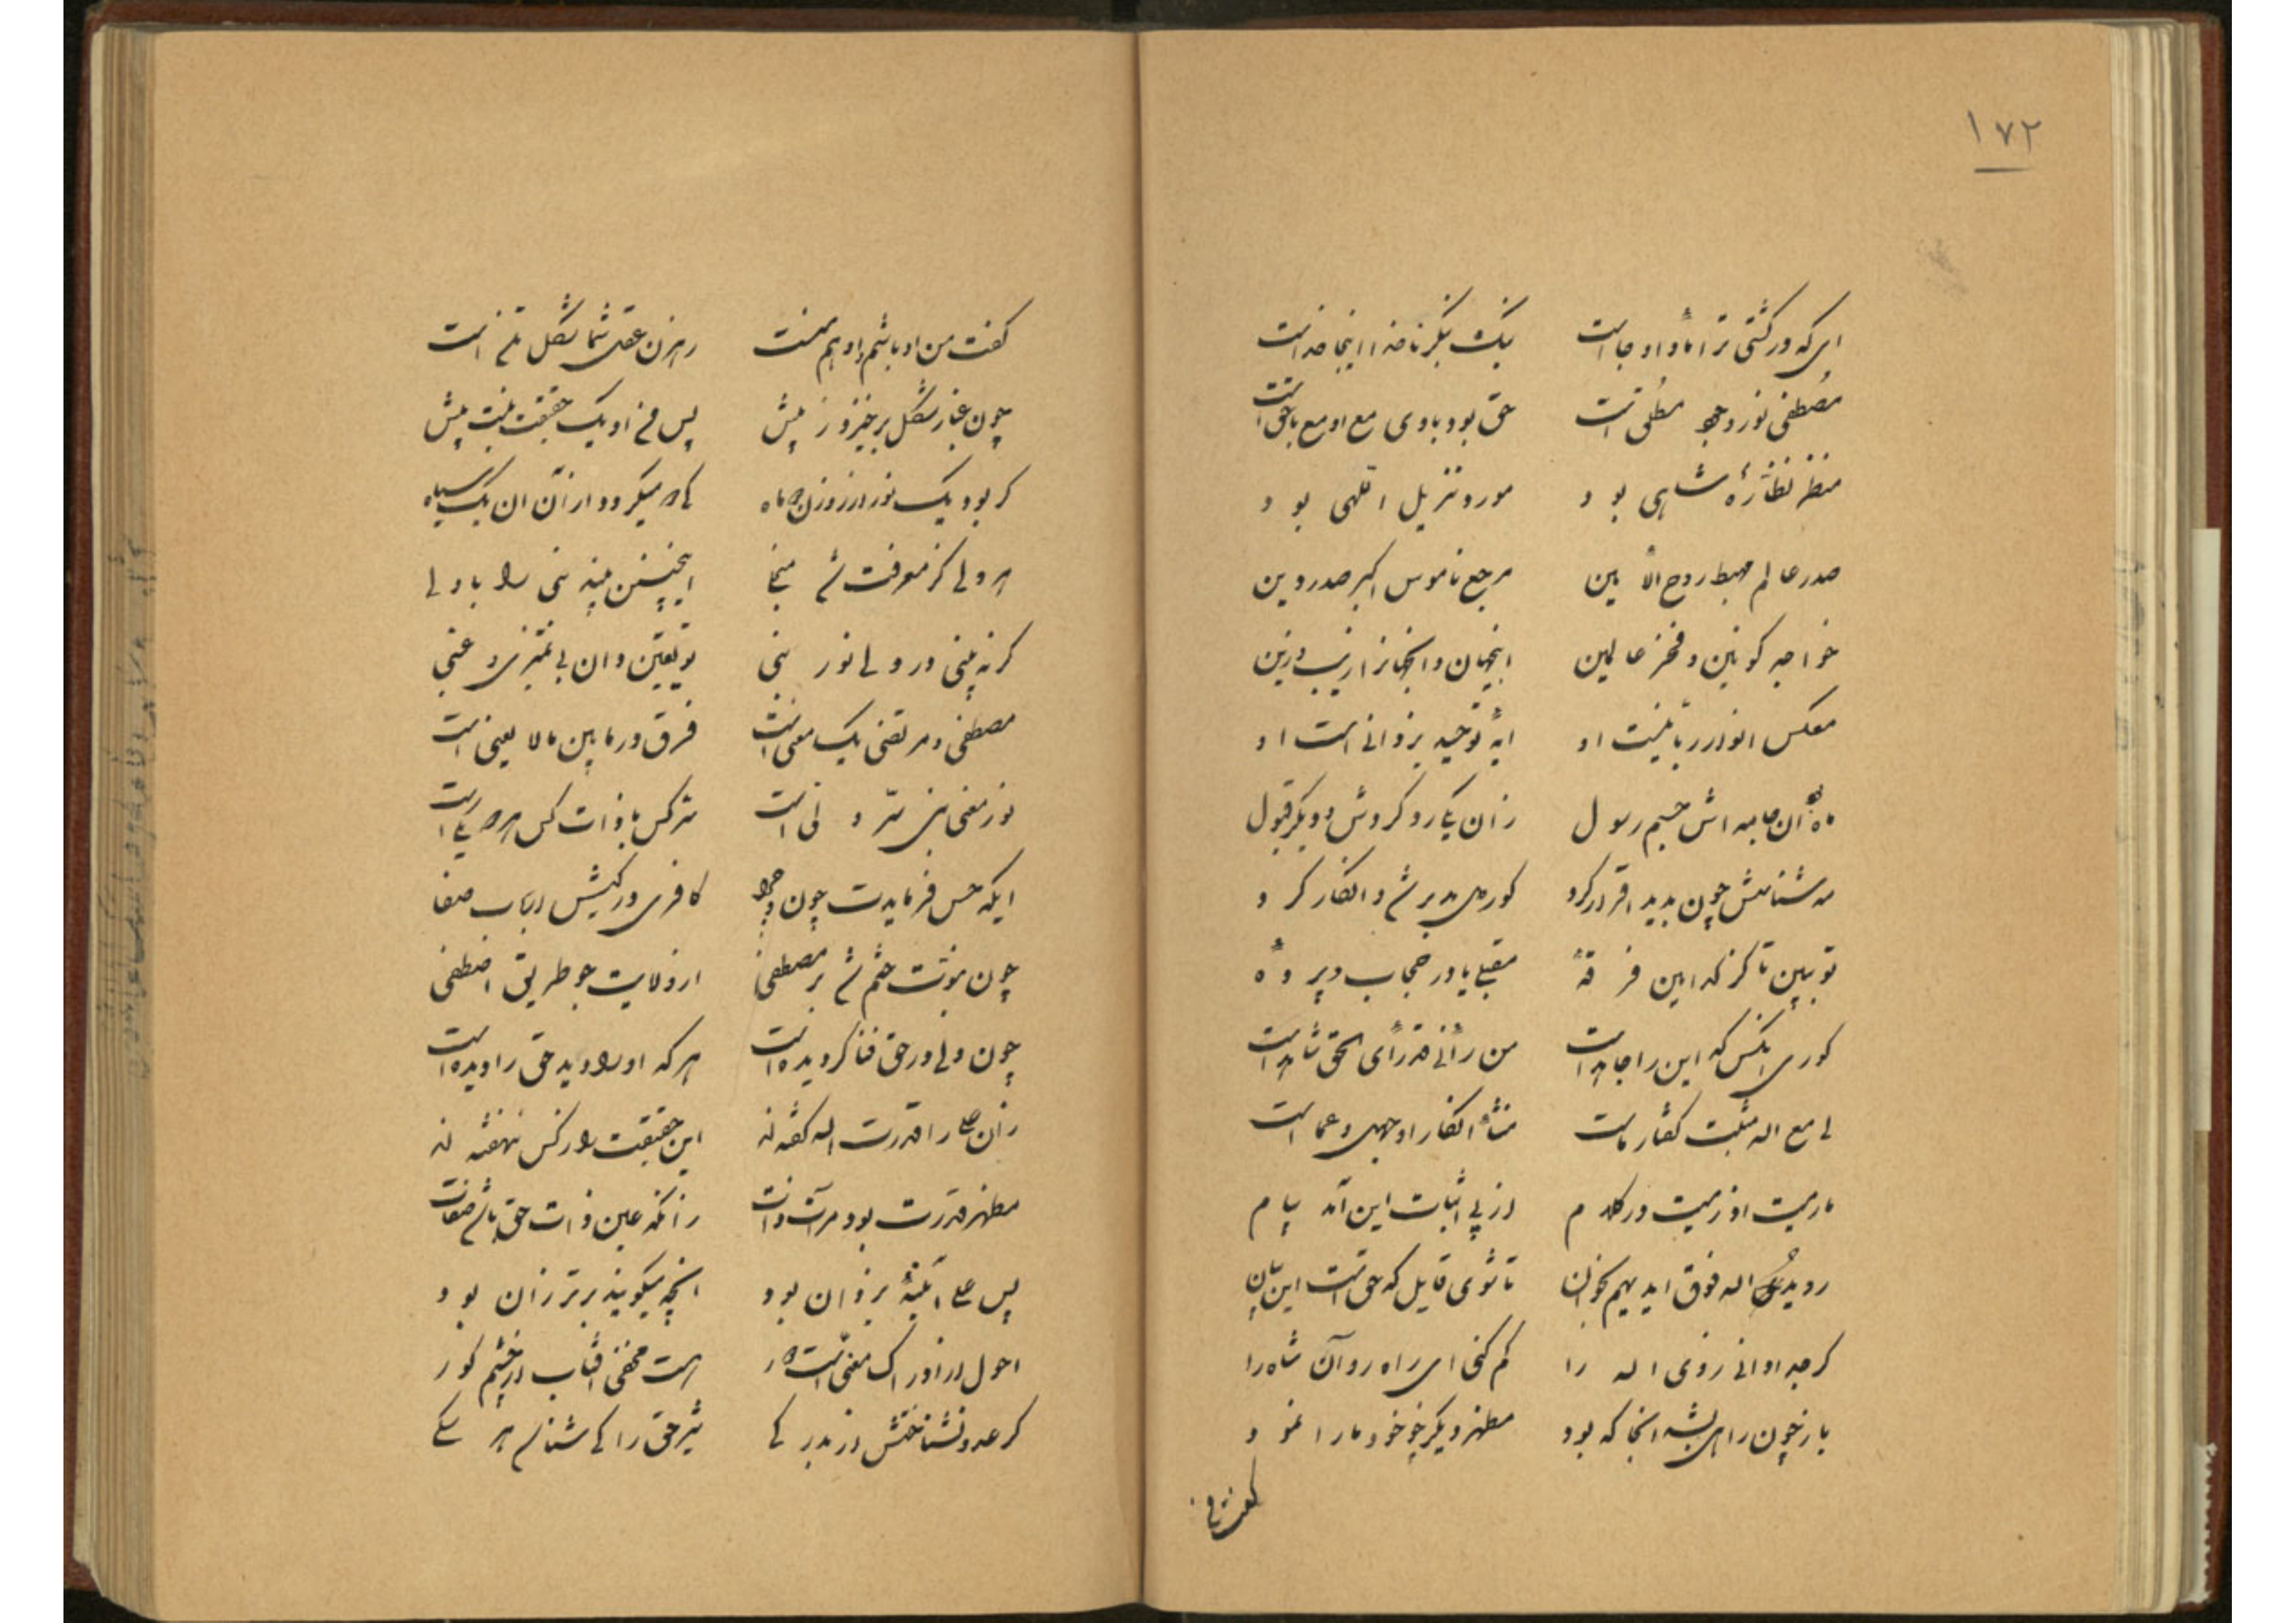 ۱۷۲
ای که در کشتی ترا مأوا و جاست نیک بنگر ناخدا اینجا خداست
مصطفی نور وجود مطلق است حق بود با وی مع او مع با حق است
منظر نظارهٔ شاهی بود مورد تنزیل اللهی بود
صدر عالم مهبط روح الأمین مرجع ناموس اکبر صدر دین
خواجه کونین و فخر عالمین اینجهان و انجهانرا زیب و زین
معکس انوار ربانیت او آیه توحید یزدانی است او
ماه آن جامه اش جسم رسول زان یکی رد کردش و دیگر قبول
مه شناسش چون بدید اقرار کرد کور مدبر شد و انکار کرد
تو ببین تا کز که این فرقه مقبلی یا در حجاب وپردهٔ
کوری انکس که این را جاهد است من رأنی قد رأی الحق شاهد است
لی مع اله مثبت گفتار ماست منشأ انکار او جهل و عماست
مارمیت اذ رمیت در کلام از پی اثبات این آمد پیام
رو ید اله فوق ایدیهم بخوان تا شوی قایل که حق است این بیان
گرچه اوانی زوی اله را گم کنی ای راه رو آن شاه را
باز چون راهی بشه انجا که بود مظهر دیگر خود مارا نمود
گفت من
گفت من او باشم و او هم منست رهزن عقل شما شکل تن است
چون غبار شکل برخیزد ز پیش پس من او یک حقیقت نیست بیش
گر بود یک نور در روزن ماه میگردد از آن ان یک سیاه
هر دلی کز معرفت شد منجلی اینچنین بیند نبی را با ولی
گر نه بینی در ولی نور نبی تو یقین دان بی تمیزی و غبی
مصطفی و مرتضی یک معنی است فرق در مابین ما لا یعنی است
نور معنی بین سر و
ایکه حس فرمایدت چون و چرا کافری در کیش ارباب صفا
چون نبوت ختم شد بر مصطفی از ولایت جو طریق اصطفی
چون ولی در حق فنا گردیده است هر که او را دید حق را دیده است
زان علی را قدرت اله گفته اند این حقیقت را ز کس ننهفته اند
مظهر قدرت بود مرآت ذات زانکه عین ذات حق باشد صفات
پس علی آئینهٔ یزدان بود انچه میگویند برتر زان بود
احول از ادراک معنی است دور هست مخفی افتاب از چشم کور
گر عدو نشناختش از بد رگی شیر حق را کی شناسد هر سگی